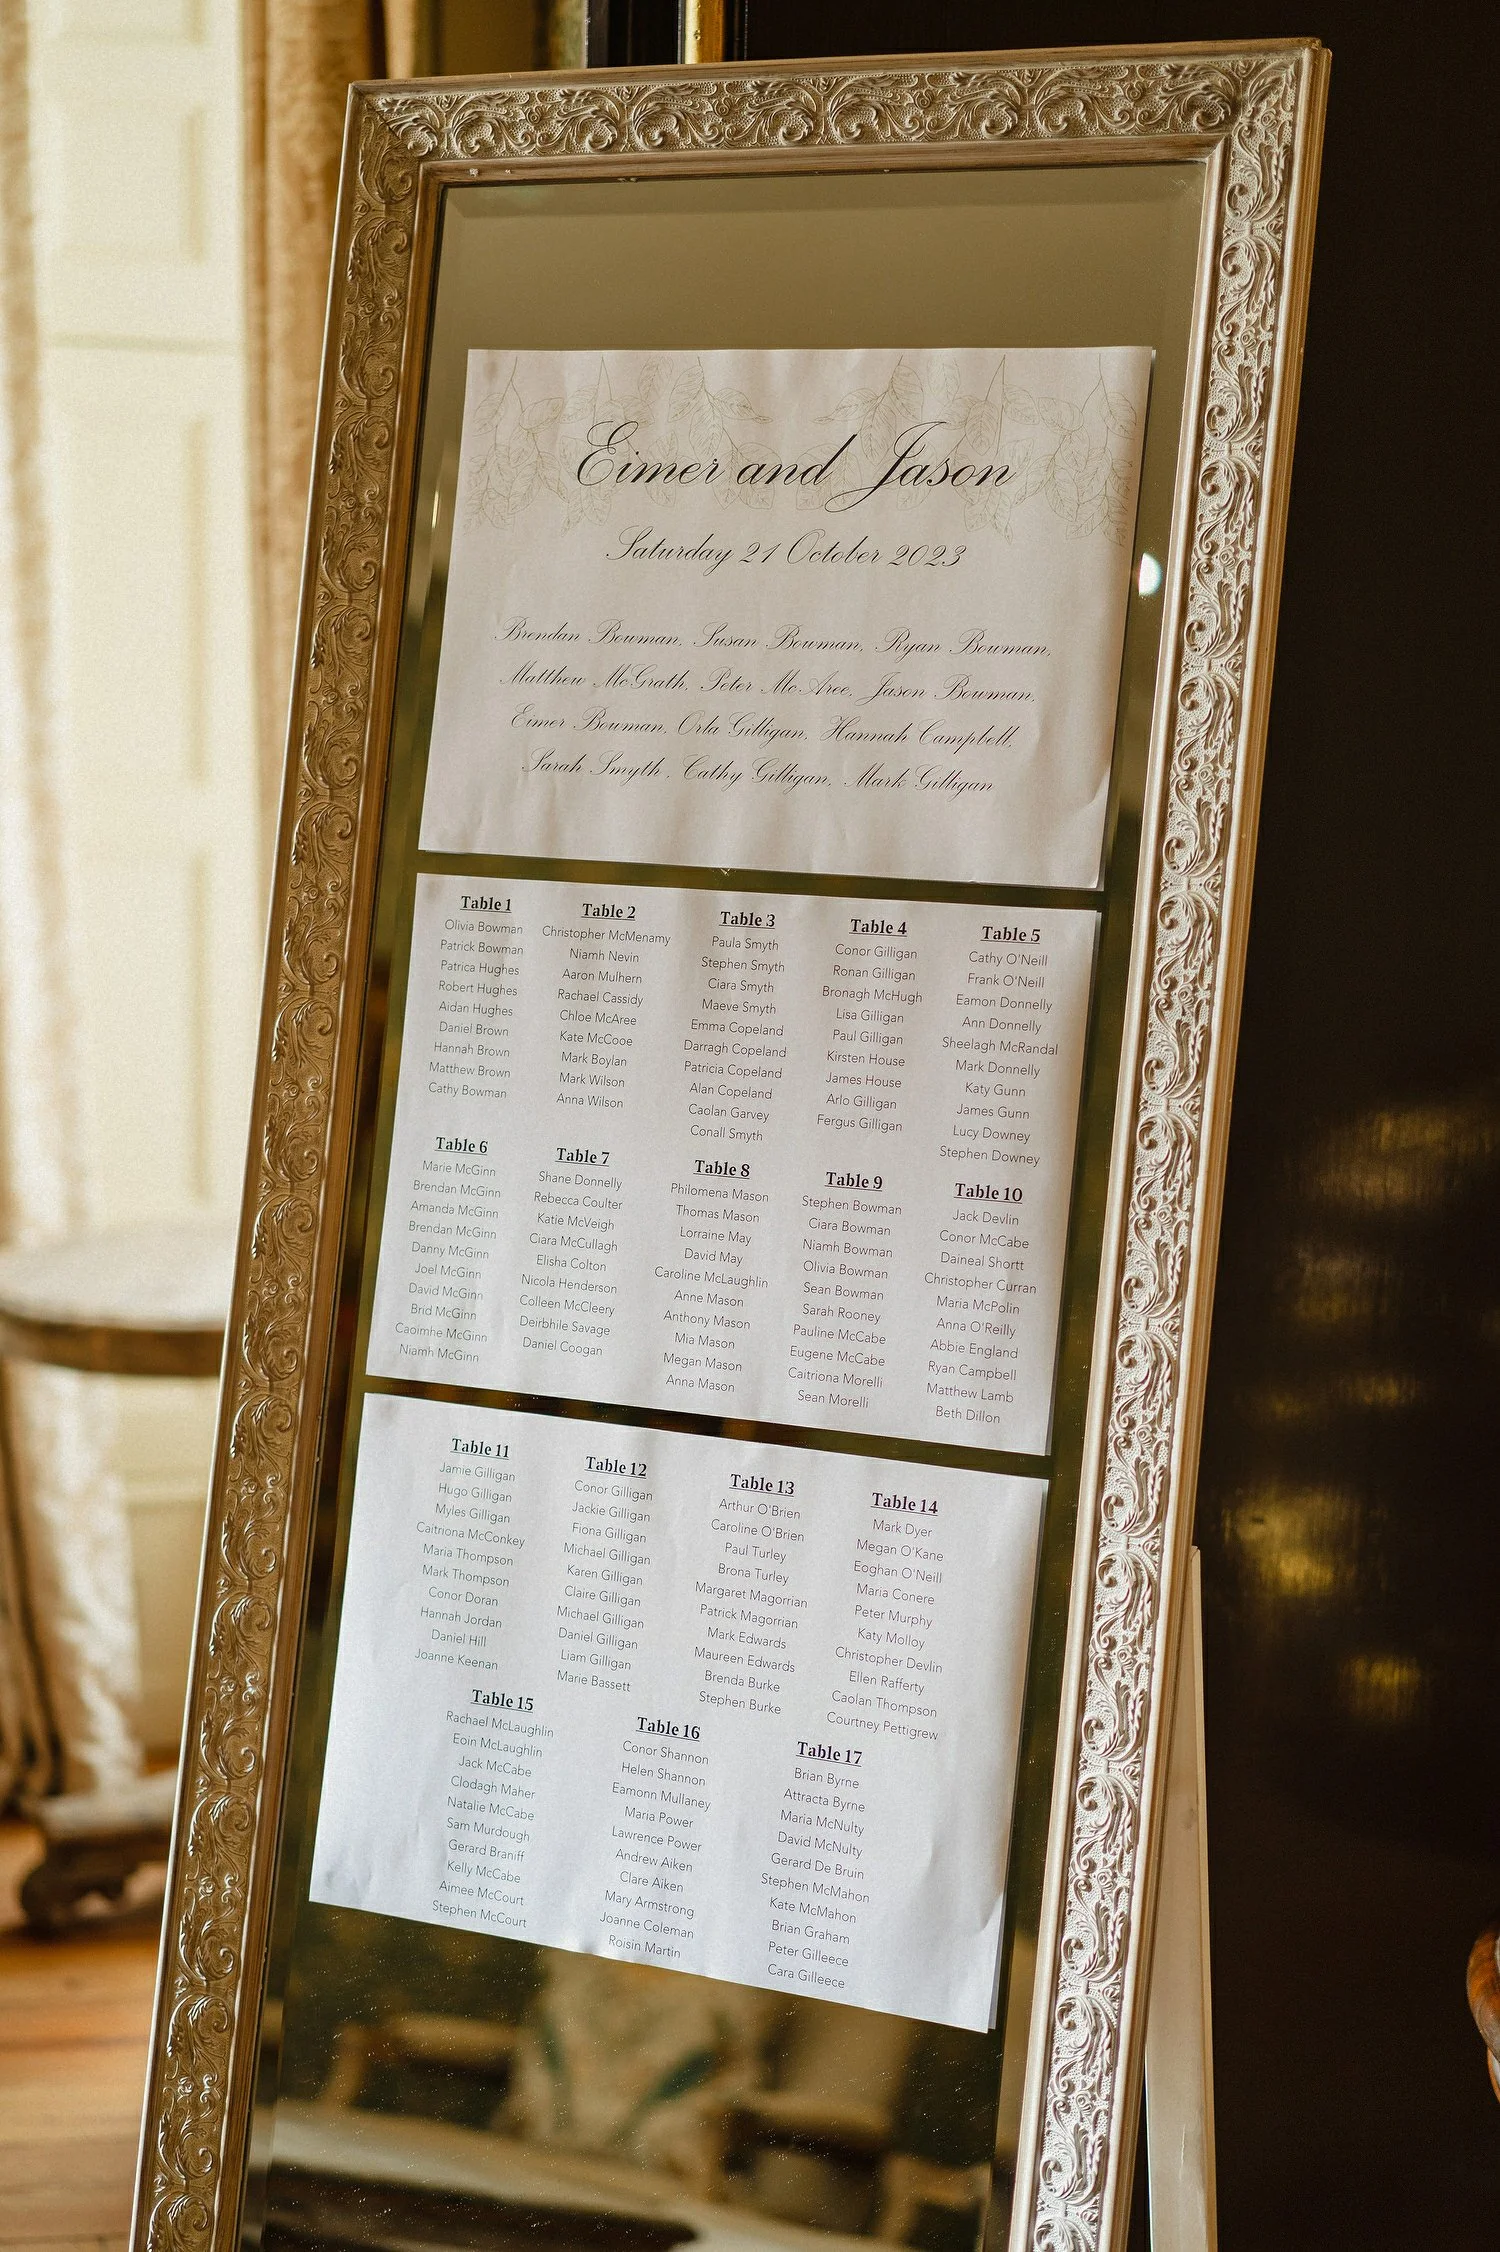 Eimer and Jason
Saturday 21 October 2023
Brendan Bowman, Susan Bowman, Ryan Bowman,
Matthew McGrath, Peter McAree, Jason Bowman,
Eimer Bowman, Orla Gilligan, Hannah Campbell,
Sarah Smyth, Cathy Gilligan, Mark Gilligan
Table 1
Olivia Bowman
Patrick Bowman
Patrica Hughes
Robert Hughes
Aidan Hughes
Daniel Brown
Hannah Brown
Matthew Brown
Cathy Bowman
Table 2
Christopher McMenamy
Niamh Nevin
Aaron Mulhern
Rachael Cassidy
Chloe McAree
Kate McCooe
Mark Boylan
Mark Wilson
Anna Wilson
Table 3
Paula Smyth
Stephen Smyth
Ciara Smyth
Maeve Smyth
Emma Copeland
Darragh Copeland
Patricia Copeland
Alan Copeland
Caolan Garvey
Conall Smyth
Table 4
Conor Gilligan
Ronan Gilligan
Bronagh McHugh
Lisa Gilligan
Paul Gilligan
Kirsten House
James House
Arlo Gilligan
Fergus Gilligan
Table 5
Cathy O'Neill
Frank O'Neill
Eamon Donnelly
Ann Donnelly
Sheelagh McRandal
Mark Donnelly
Katy Gunn
James Gunn
Lucy Downey
Stephen Downey
Table 6
Marie McGinn
Brendan McGinn
Amanda McGinn
Brendan McGinn
Danny McGinn
Joel McGinn
David McGinn
Brid McGinn
Caoimhe McGinn
Niamh McGinn
Table 7
Shane Donnelly
Rebecca Coulter
Katie McVeigh
Ciara McCullagh
Elisha Colton
Nicola Henderson
Colleen McCleery
Deirbhile Savage
Daniel Coogan
Table 8
Philomena Mason
Thomas Mason
Lorraine May
David May
Caroline McLaughlin
Anne Mason
Anthony Mason
Mia Mason
Megan Mason
Anna Mason
Table 9
Stephen Bowman
Ciara Bowman
Niamh Bowman
Olivia Bowman
Sean Bowman
Sarah Rooney
Pauline McCabe
Eugene McCabe
Caitriona Morelli
Sean Morelli
Table 10
Jack Devlin
Conor McCabe
Daineal Shortt
Christopher Curran
Maria McPolin
Anna O'Reilly
Abbie England
Ryan Campbell
Matthew Lamb
Beth Dillon
Table 11
Jamie Gilligan
Hugo Gilligan
Myles Gilligan
Caitriona McConkey
Maria Thompson
Mark Thompson
Conor Doran
Hannah Jordan
Daniel Hill
Joanne Keenan
Table 12
Conor Gilligan
Jackie Gilligan
Fiona Gilligan
Michael Gilligan
Karen Gilligan
Claire Gilligan
Michael Gilligan
Daniel Gilligan
Liam Gilligan
Marie Bassett
Table 13
Arthur O'Brien
Caroline O'Brien
Paul Turley
Brona Turley
Margaret Magorrian
Patrick Magorrian
Mark Edwards
Maureen Edwards
Brenda Burke
Stephen Burke
Table 14
Mark Dyer
Megan O'Kane
Eoghan O'Neill
Maria Conere
Peter Murphy
Katy Molloy
Christopher Devlin
Ellen Rafferty
Caolan Thompson
Courtney Pettigrew
Table 15
Rachael McLaughlin
Eoin McLaughlin
Jack McCabe
Clodagh Maher
Natalie McCabe
Sam Murdough
Gerard Braniff
Kelly McCabe
Aimee McCourt
Stephen McCourt
Table 16
Conor Shannon
Helen Shannon
Eamonn Mullaney
Maria Power
Lawrence Power
Andrew Aiken
Clare Aiken
Mary Armstrong
Joanne Coleman
Roisin Martin
Table 17
Brian Byrne
Attracta Byrne
Maria McNulty
David McNulty
Gerard De Bruin
Stephen McMahon
Kate McMahon
Brian Graham
Peter Gilleece
Cara Gilleece